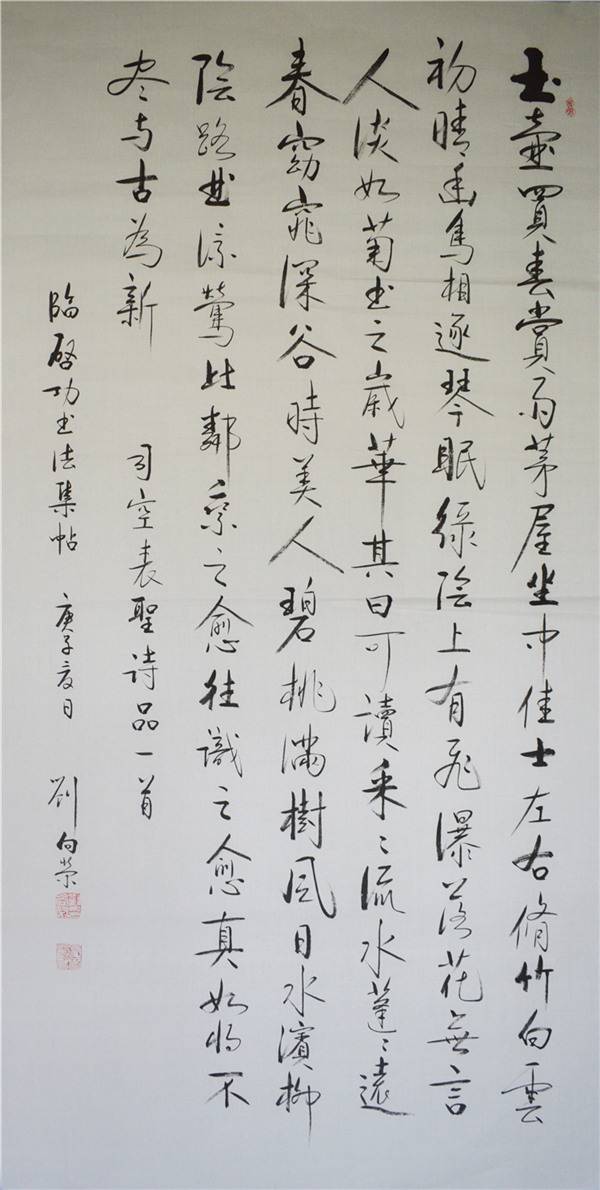 玉壺買春賞雨茅屋坐中佳士左右脩竹白雲
初晴幽鳥相逐琴眠綠陰上有飛瀑落花無言
人淡如菊书之歲華其曰可讀采〻流水蓬〻遠
春窈窕深谷時美人碧桃滿樹風日水濱柳
陰路曲流鶯比鄰乘之愈往識之愈真如将不
尽与古為新
司空表聖诗品一首
臨启功书法集帖 庚子夏日 劉向荣